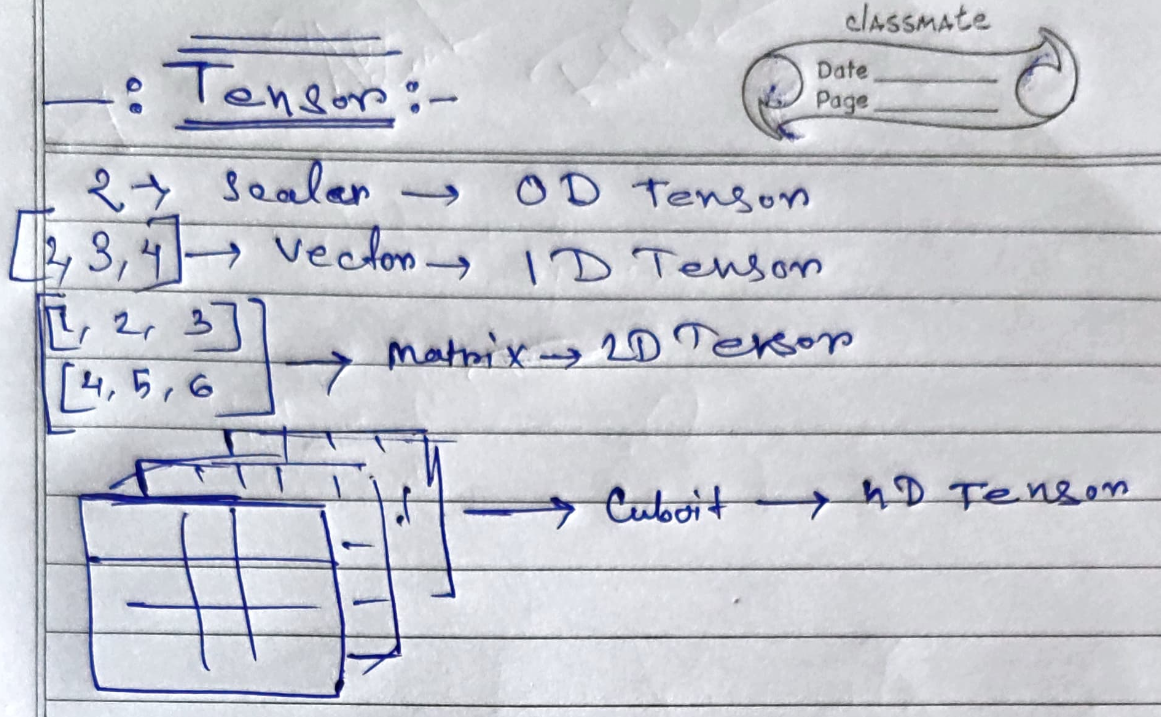 classmate
Date
Page
—: Tensor :-
2 → Scalar → 0D Tensor
[2, 3, 4] → Vector → 1D Tensor
[[1, 2, 3]
[4, 5, 6 ] → Matrix → 2D Tensor
→ Cuboit → nD Tensor